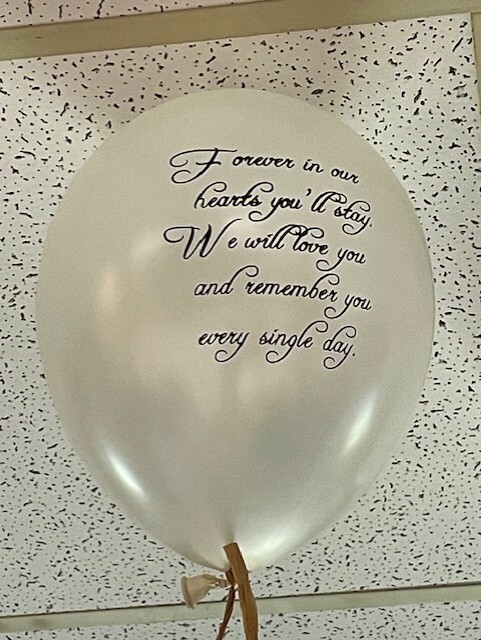 Forever in our
hearts you'll stay.
We will love you
and remember you
every single day.